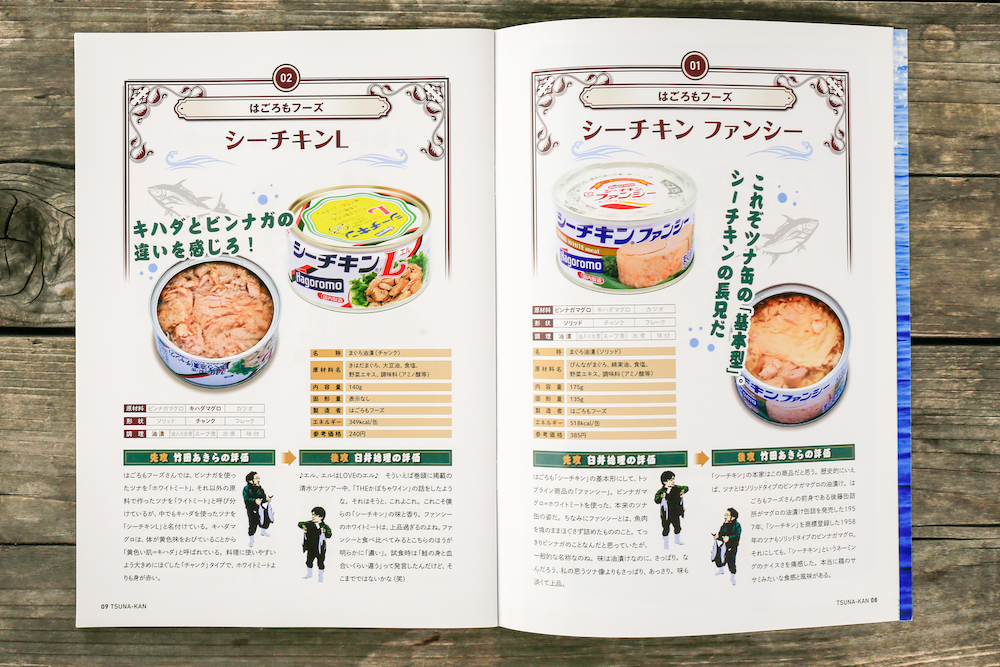 01
はごろもフーズ
シーチキン ファンシー
これぞツナ缶の「基本型」。
シーチキンの長兄だ
シーチキン
ファンシー
シーチキン ファンシー
WHITE meat
Hagoromo
シーチキン ファンシー
原材料 ビンナガマグロ キハダマグロ カツオ
形状 ソリッド チャンク フレーク
調理 油漬 油入り水煮 スープ煮 水煮 味付
名称 まぐろ油漬(ソリッド)
原材料名 びんながまぐろ、綿実油、食塩、
野菜エキス、調味料(アミノ酸等)
内容量 175g
固形量 135g
製造者 はごろもフーズ
エネルギー 518kcal/缶
参考価格 385円
先攻 臼井総理の評価
はごろも「シーチキン」の基本形にして、トッ
プライン商品の「ファンシー」。ビンナガマ
グロ=ホワイトミートを使った、本来のツナ
缶の姿だ。ちなみにファンシーとは、魚肉
を塊のままほぐさず詰めたもののこと。てっ
きりビンナガのことなんだと思っていたが、
一般的な名称なのね。味は油漬けなのに、さっぱり。な
んだろう、私の思うツナ像よりもさっぱり、あっさり。味も
淡くて上品。
後攻 竹田あきらの評価
「シーチキン」の本家はこの商品だと思う。歴史的にいえ
ば、ツナとはソリッドタイプのビンナガマグロの油漬け。は
ごろもフーズさんの前身である後藤缶詰
所がマグロの油漬け缶詰を発売した195
7年、「シーチキン」を商標登録した1958
年のツナもソリッドタイプのビンナガマグロ。
それにしても、「シーチキン」というネーミン
グのナイスさを痛感した。本当に鶏のサ
サミみたいな食感と風味がある。
TSUNA-KAN 08
02
はごろもフーズ
シーチキンL
キハダとビンナガの
違いを感じろ!
シーチキン
L
シーチキンL
エル
Hagoromo
原材料 ビンナガマグロ キハダマグロ カツオ
形状 ソリッド チャンク フレーク
調理 油漬 油入り水煮 スープ煮 水煮 味付
名称 まぐろ油漬(チャンク)
原材料名 きはだまぐろ、大豆油、食塩、
野菜エキス、調味料(アミノ酸等)
内容量 140g
固形量 表示なし
製造者 はごろもフーズ
エネルギー 349kcal/缶
参考価格 240円
先攻 竹田あきらの評価
はごろもフーズさんでは、ビンナガを使っ
たツナを「ホワイトミート」、それ以外の原
料で作ったツナを「ライトミート」と呼び分
けているが、中でもキハダを使ったツナを
「シーチキンL」と名付けている。キハダマ
グロは、体が黄色味をおびていることから
「黄色い肌=キハダ」と呼ばれている。料理に使いやすい
よう大きめにほぐした「チャンク」タイプで、ホワイトミートよ
りも身が赤い。
後攻 臼井総理の評価
♪エル、エルはLOVEのエル♪ そういえば巻頭に掲載の
清水ツナツアー中、「THEかぼちゃワイン」の話をしたよう
な。それはそうと、これよこれ。これこそ僕
らの「シーチキン」の味と香り。ファンシー
のホワイトミートは、上品過ぎるのよね。ファ
ンシーと食べ比べてみるとこちらのほうが
明らかに「濃い」。試食時は「鮭の身と血
合いくらい違う」って発言したんだけど、そ
こまでではないかな(笑)
09 TSUNA-KAN